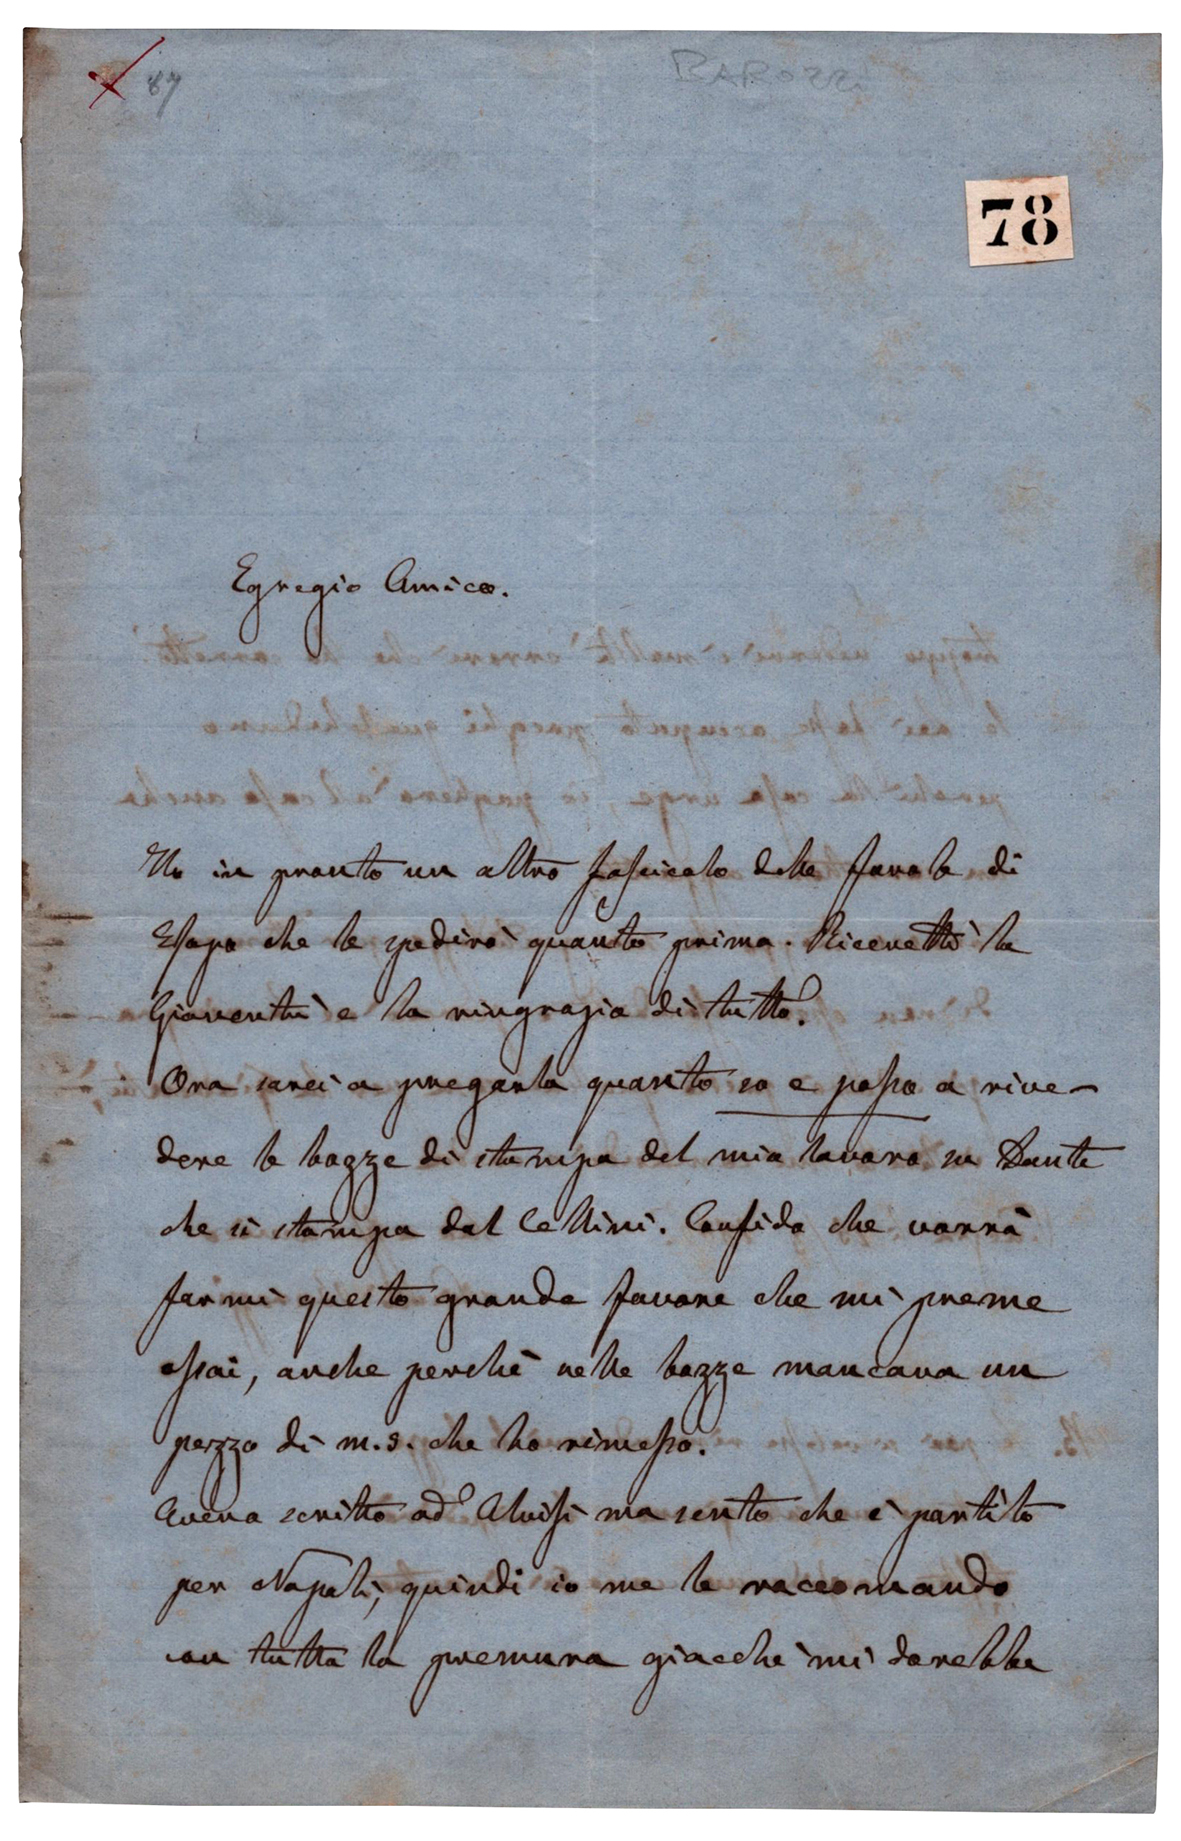 87
BAROZZI
78
Egregio Amico.
Ho in pronto un altro fascicolo delle favole di
Esopo che le spedirò quanto prima. Ricevetti la
Gioventù e la ringrazio di tutto.
Ora sarei a pregarla quanto so e posso a rive-
dere le bozze di stampa del mio lavoro su Dante
che si stampa dal Cellini. Confido che vorrà
farmi questo grande favore che mi preme
assai, anche perchè nelle bozze mancava un
pezzo di m.s. che ho rimesso.
Aveva scritto ad Aluisi ma sento che è partito
per Napoli, quindi io me le raccomando
con tutta la premura giacchè mi dorebbe